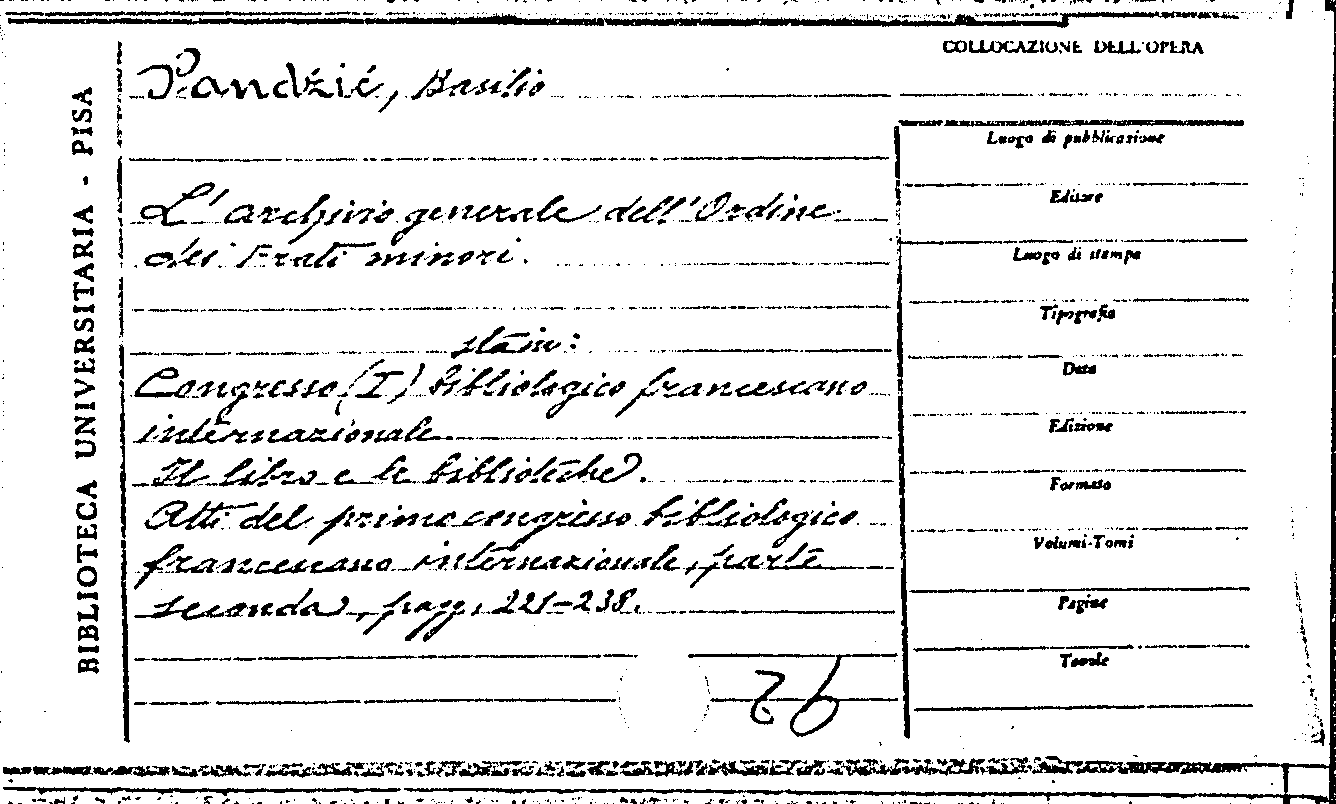 BIBLIOTECA UNIVERSITARIA - PISA
Pandžić, Basilio
L'archivio generale dell'Ordine
dei Frati minori.
sta in:
Congresso (I) bibliologico francescano
internazionale.
Il libro e le biblioteche.
Atti del primo congresso bibliologico
francescano internazionale, parte
seconda, pagg. 221-238.
26
COLLOCAZIONE DELL'OPERA
Luogo di pubblicazione
Editore
Luogo di stampa
Tipografia
Data
Edizione
Formato
Volumi-Tomi
Pagine
Tavole